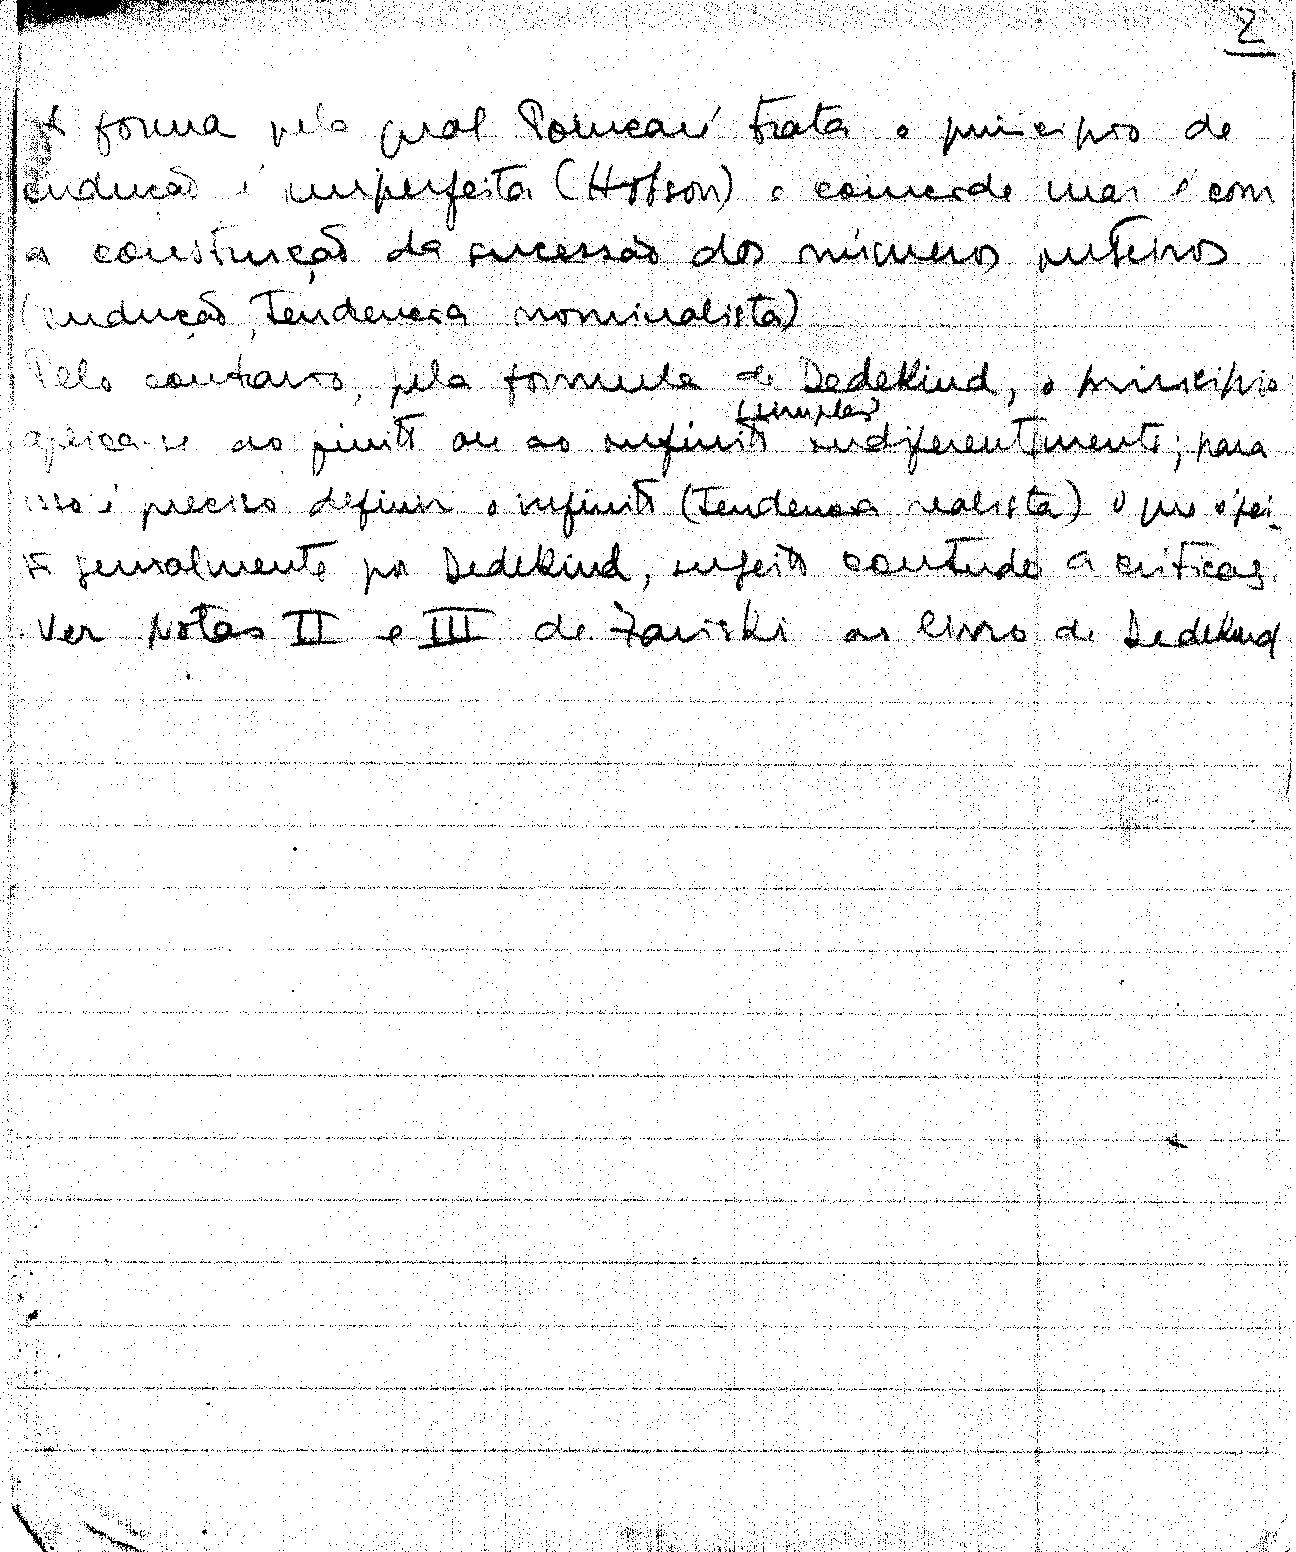 2
A forma pela qual Poincaré trata o principio de
indução é imperfeita (Hobson) e coincide mais é com
a construção da sucessão dos números inteiros
(indução, Tendencia nominalista)
Pelo contrario, pela formula de Dedekind, o principio
(simples)
aplica-se ao finito ou ao infinito indiferentemente; para
isso é preciso definir o infinito (Tendencia realista) o que é fei-
to genialmente por Dedekind, sujeito contudo a criticas.
Ver Notas II e III de Zariski ao livro de Dedekind